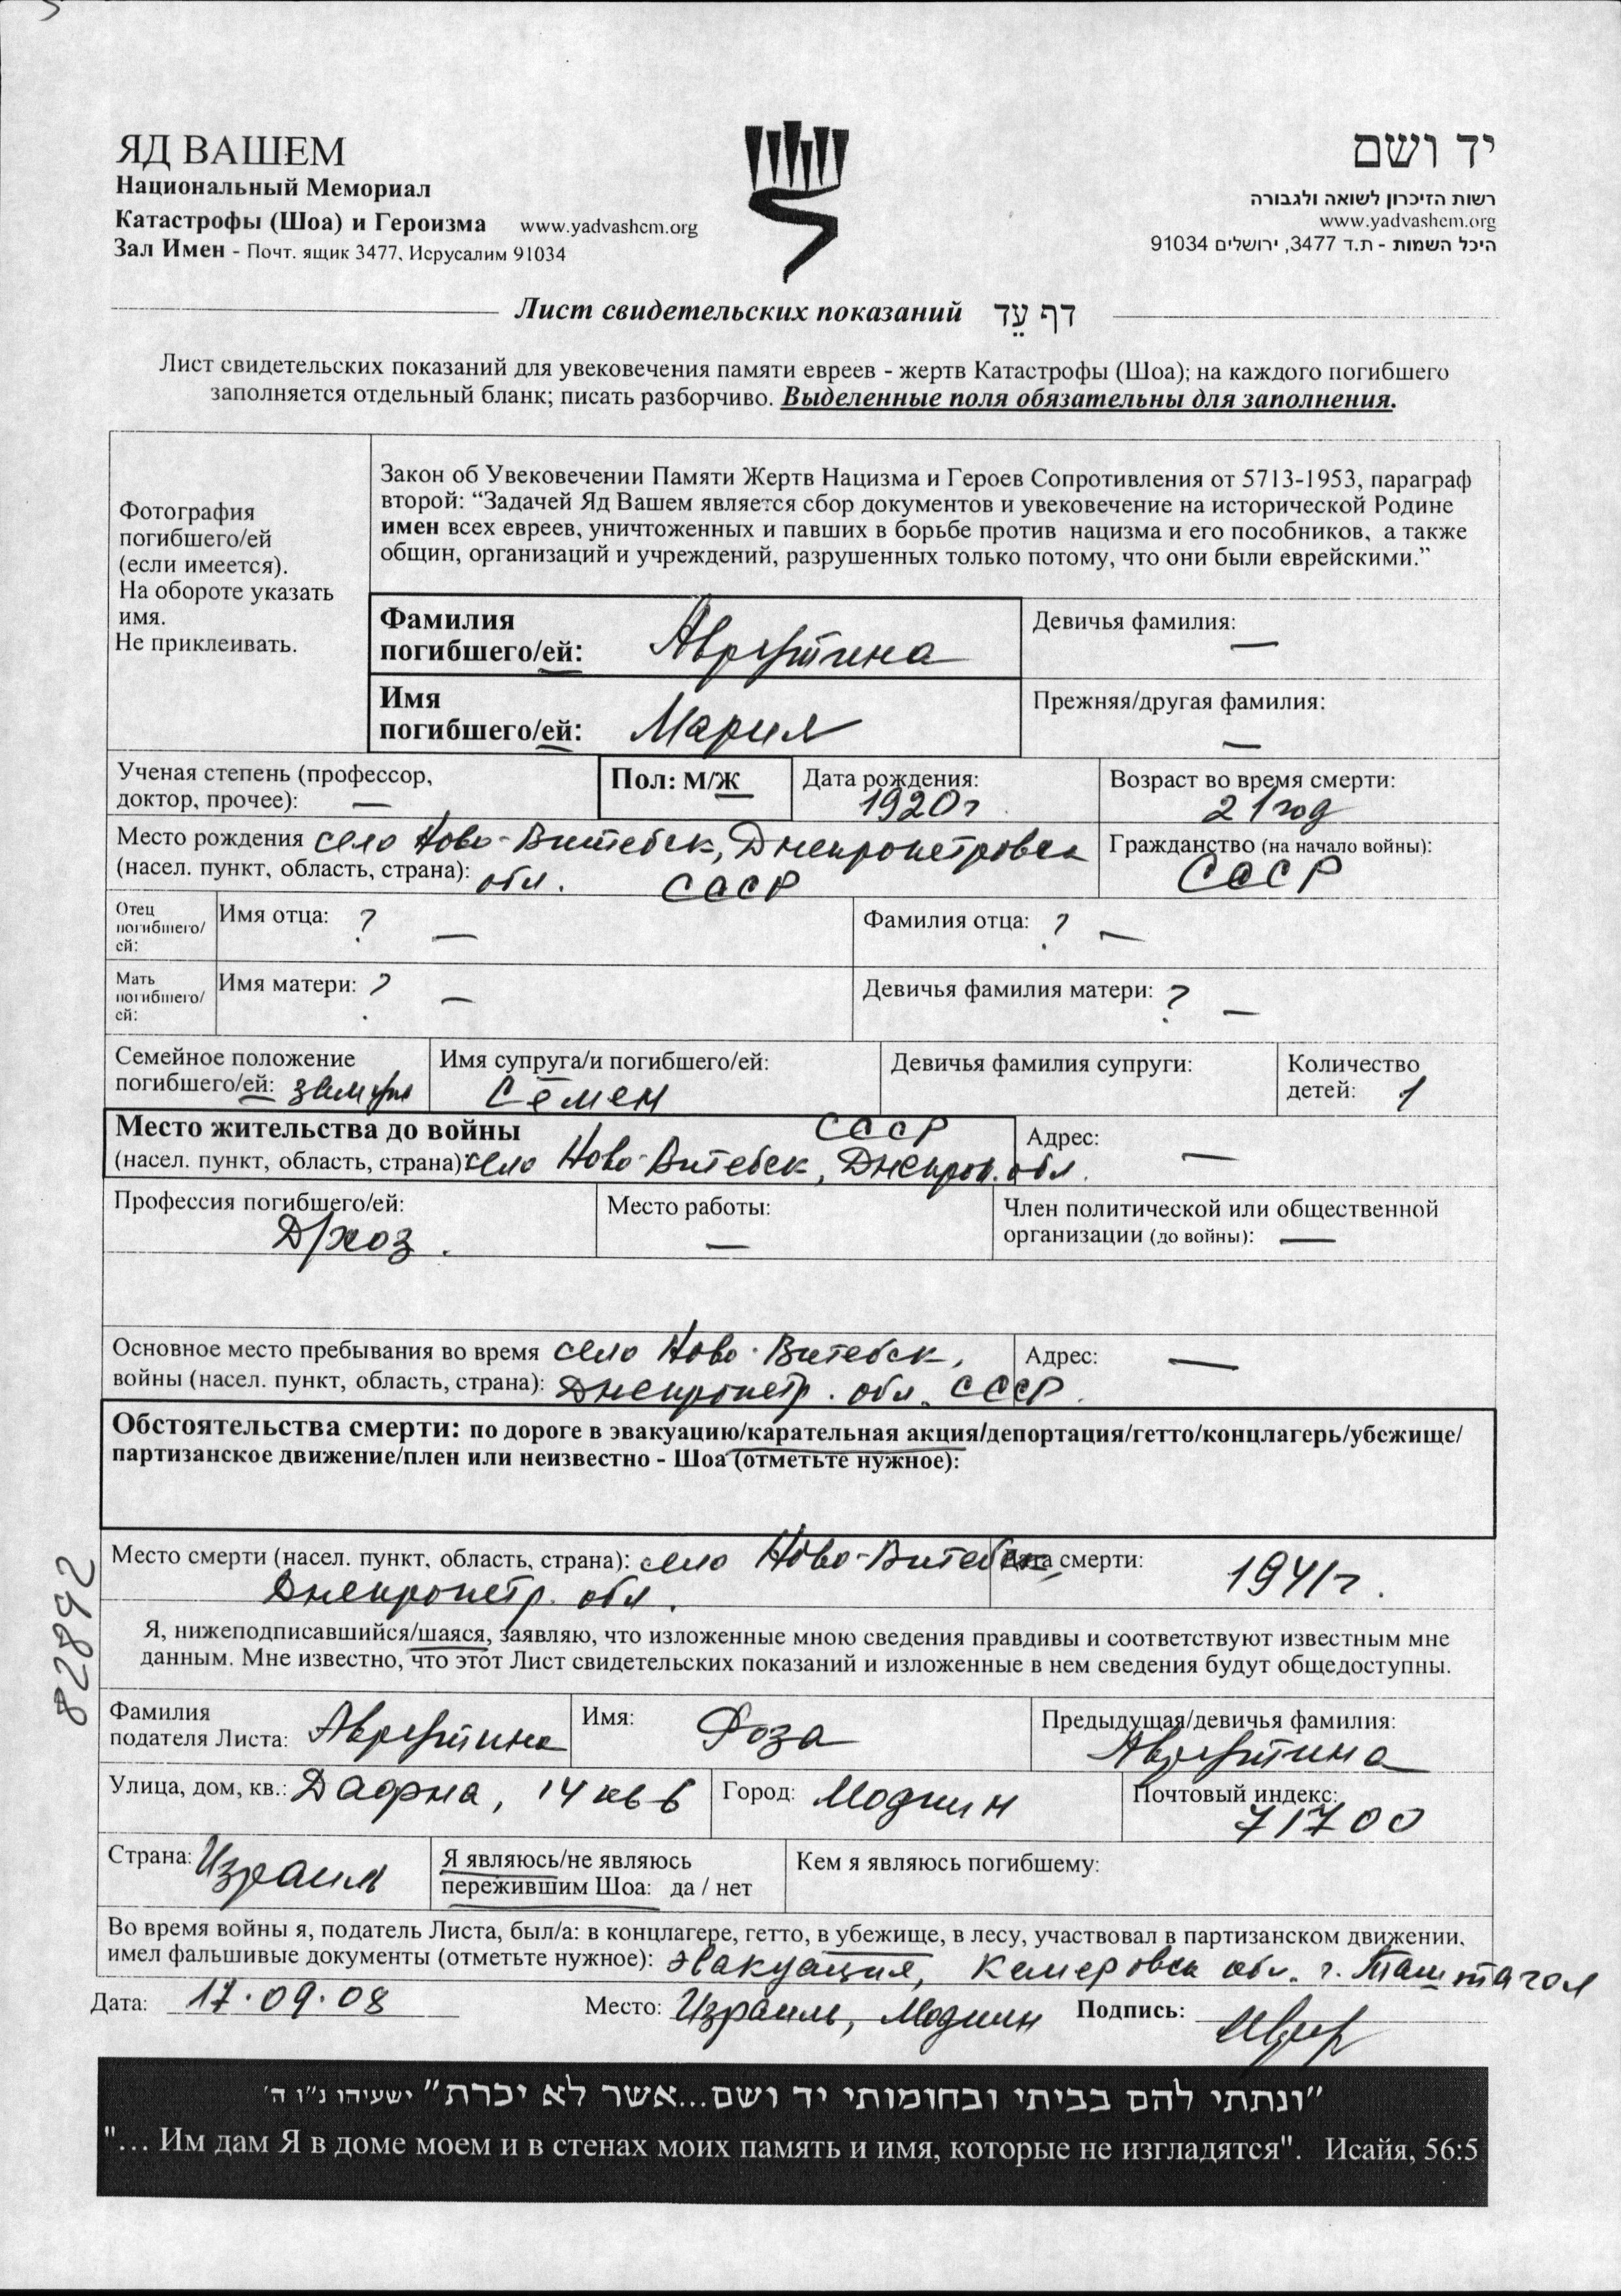 ЯД ВАШЕМ
Национальный Мемориал
Катастрофы (Шоа) и Героизма www.yadvashem.org
Зал Имен - Почт. ящик 3477, Иерусалим 91034
יד ושם
רשות הזיכרון לשואה ולגבורה
www.yadvashem.org
היכל השמות - ת.ד 3477, ירושלים 91034
Лист свидетельских показаний דף עֵד
Лист свидетельских показаний для увековечения памяти евреев - жертв Катастрофы (Шоа); на каждого погибшего
заполняется отдельный бланк; писать разборчиво. Выделенные поля обязательны для заполнения.
Фотография
погибшего/ей
(если имеется).
На обороте указать
имя.
Не приклеивать.
Закон об Увековечении Памяти Жертв Нацизма и Героев Сопротивления от 5713-1953, параграф
второй: “Задачей Яд Вашем является сбор документов и увековечение на исторической Родине
имен всех евреев, уничтоженных и павших в борьбе против нацизма и его пособников, а также
общин, организаций и учреждений, разрушенных только потому, что они были еврейскими.”
Фамилия
погибшего/ей: Аврутина
Девичья фамилия: —
Имя
погибшего/ей: Мария
Прежняя/другая фамилия: —
Ученая степень (профессор,
доктор, прочее): —
Пол: М/Ж
Дата рождения:
1920г
Возраст во время смерти:
21 год
Место рождения село Ново-Витебск, Днепропетровск
(насел. пункт, область, страна): обл. СССР
Гражданство (на начало войны):
СССР
Отец
погибшего/
ей:
Имя отца: ? —
Фамилия отца: ? —
Мать
погибшего/
ей:
Имя матери: ? —
Девичья фамилия матери: ? —
Семейное положение
погибшего/ей: замужем
Имя супруга/и погибшего/ей:
Семен
Девичья фамилия супруги:
Количество
детей: 1
Место жительства до войны СССР
(насел. пункт, область, страна): село Ново-Витебск, Днепроп. обл.
Адрес: —
Профессия погибшего/ей:
Д/хоз.
Место работы:
—
Член политической или общественной
организации (до войны): —
Основное место пребывания во время село Ново-Витебск,
войны (насел. пункт, область, страна): Днепропетр. обл. СССР.
Адрес: —
Обстоятельства смерти: по дороге в эвакуацию/карательная акция/депортация/гетто/концлагерь/убежище/
партизанское движение/плен или неизвестно - Шоа (отметьте нужное):
Место смерти (насел. пункт, область, страна): село Ново-Витебск,
Днепропетр. обл.
Дата смерти: 1941г.
82892
Я, нижеподписавшийся/шаяся, заявляю, что изложенные мною сведения правдивы и соответствуют известным мне
данным. Мне известно, что этот Лист свидетельских показаний и изложенные в нем сведения будут общедоступны.
Фамилия
подателя Листа: Аврутина
Имя: Роза
Предыдущая/девичья фамилия:
Аврутина
Улица, дом, кв.: Дафна, 14 кв 6
Город: Модиин
Почтовый индекс:
71700
Страна: Израиль
Я являюсь/не являюсь
пережившим Шоа: да / нет
Кем я являюсь погибшему:
Во время войны я, податель Листа, был/а: в концлагере, гетто, в убежище, в лесу, участвовал в партизанском движении,
имел фальшивые документы (отметьте нужное): эвакуация, Кемеровск обл. г. Таштагол
Дата: 17.09.08
Место: Израиль, Модиин
Подпись:
"ונתתי להם בביתי ובחומותי יד ושם...אשר לא יכרת" ישעיהו נ"ו ה'
"... Им дам Я в доме моем и в стенах моих память и имя, которые не изгладятся". Исайя, 56:5